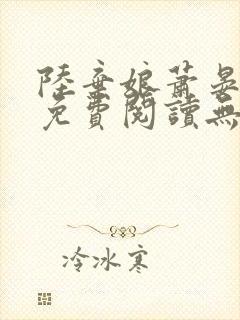 陸棄娘蕭晏
免費閱讀無
冷冰寒